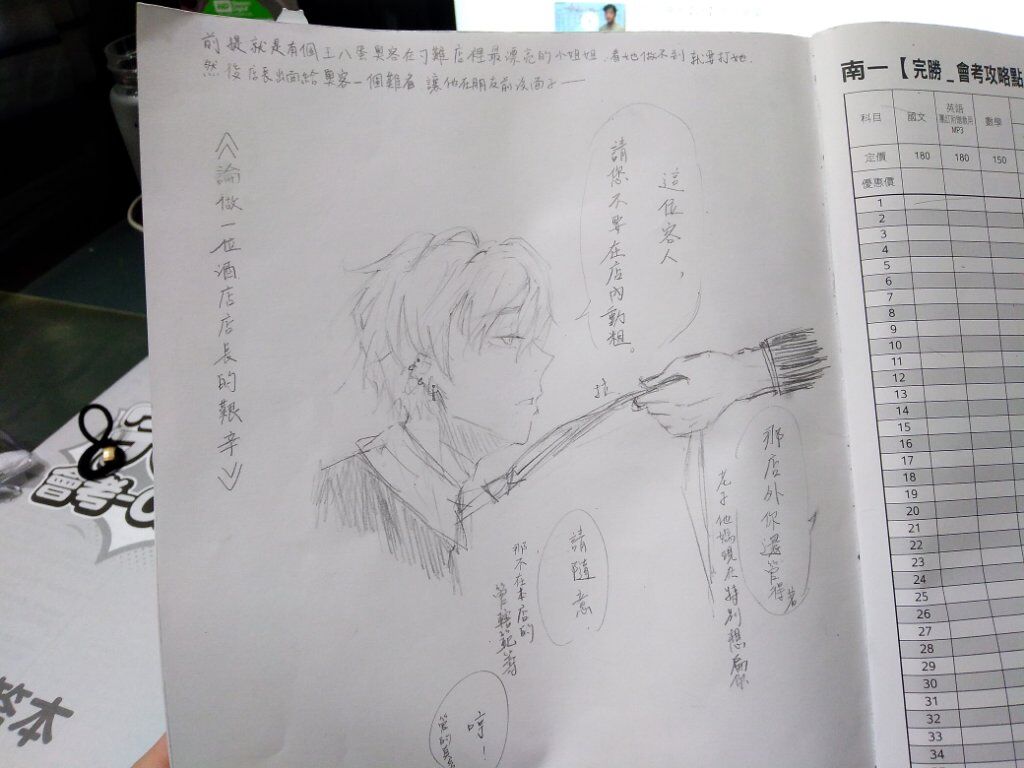 前提就是有個王八蛋奧客在刁難店裡最漂亮的小姐姐,看她做不到就要打她.
然後店長出面給奧客一個難看 讓他在朋友前沒面子——
《論做一位酒店店長的艱辛》
這位客人,
請您不要在店內動粗。
拉
那店外你還管得著
老子他媽現在特別想扁你
請隨意
那不在本店的
管轄範籌
哼!
南一【完勝_會考攻略點
科目 國文 英語 數學
MP3
定價 180 180 150
優惠價
1
2
3
4
5
6
7
8
9
10
11
12
13
14
15
16
17
18
19
20
21
22
23
24
25
26
27
28
29
30
31
32
33
34
會考
本
WD